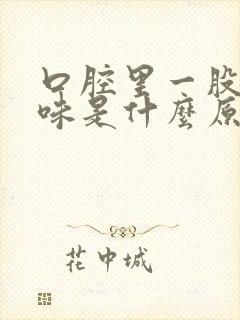 口腔里一股
味是什麼原
花中城